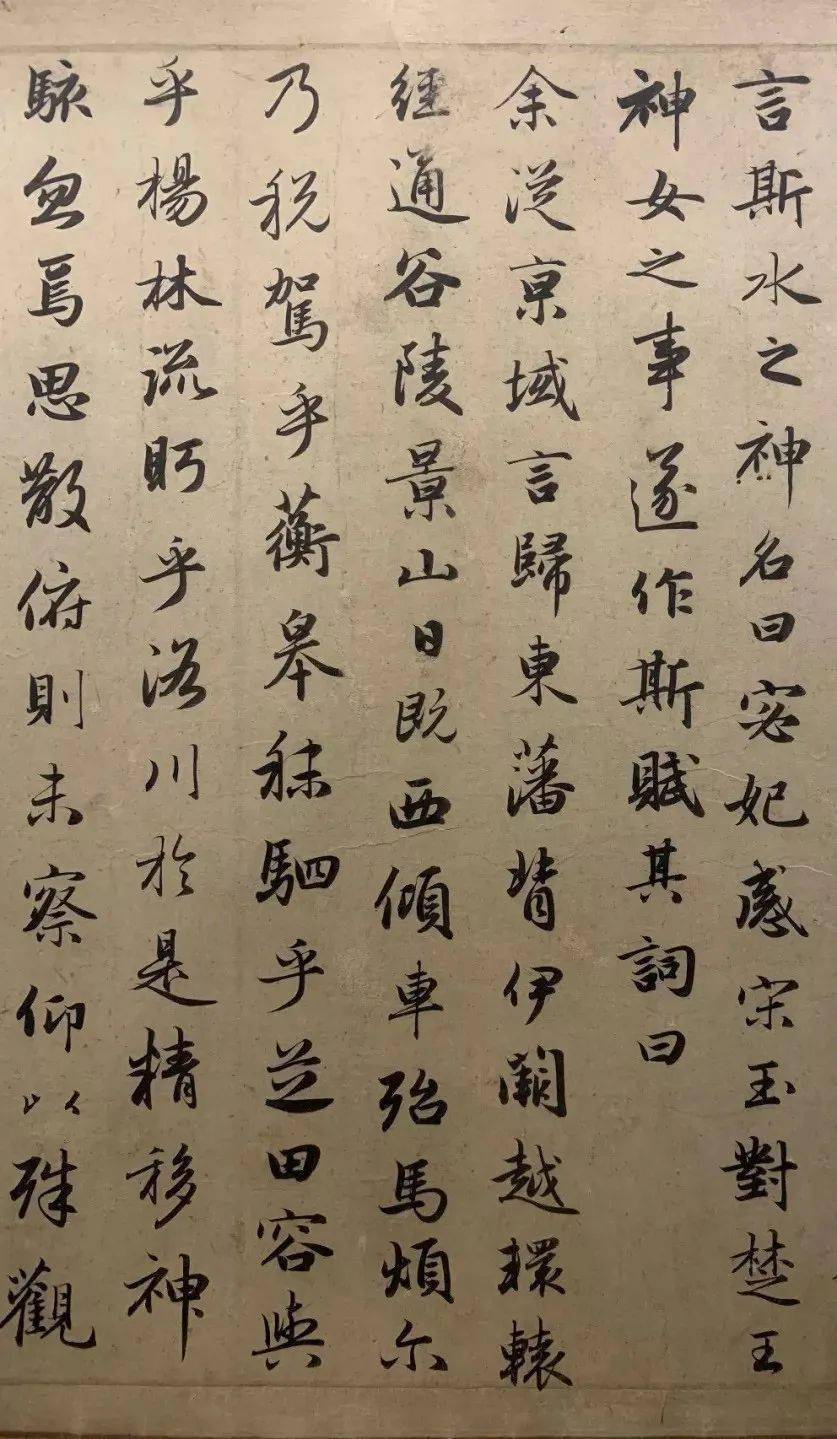 言斯水之神名曰宓妃感宋玉對楚王
神女之事遂作斯賦其詞曰
余從京域言歸東藩背伊闕越轘轅
經通谷陵景山日既西傾車殆馬煩尒
乃稅駕乎蘅皋秣駟乎芝田容與
乎楊林流眄乎洛川於是精移神
駭忽焉思散俯則未察仰以殊觀